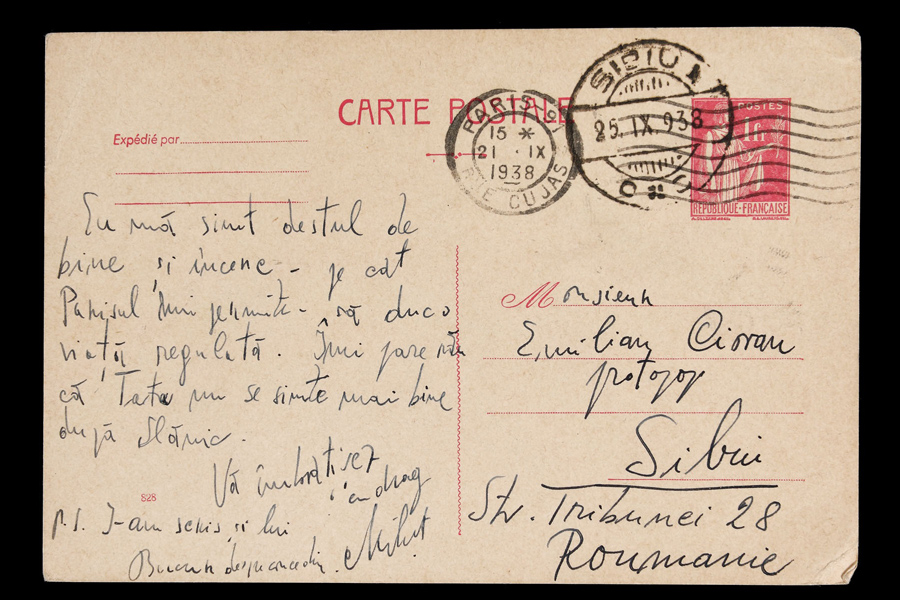 CARTE POSTALE
Expédié par
PARIS 91
15 *
21 · IX
1938
RUE CUJAS
SIBIU 1
25. IX 938
POSTES
1fr
RÉPUBLIQUE-FRANÇAISE
Eu mă simt destul de
bine și încerc - pe cât
Parisul îmi permite - să duc o
viață regulată. Îmi pare rău
că Tata nu se simte mai bine
după Slănic.
Vă îmbrățișez
cu drag
828
P.S. I-am scris și lui
Monsieur
Emilian Cioran
protopop
Sibiu
Str. Tribunei 28
Roumanie